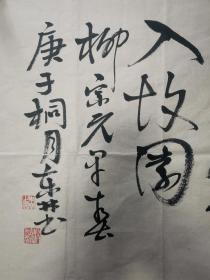 入故园
柳宗元早春
庚子桐月东林书